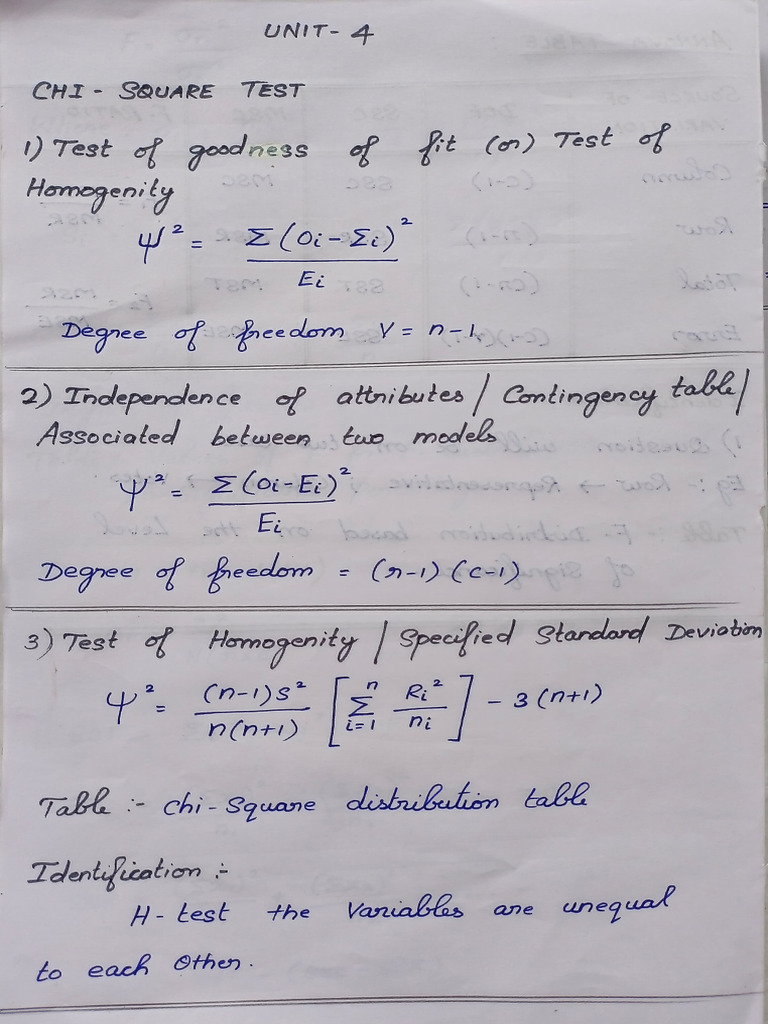 UNIT - 4
CHI - SQUARE TEST
1) Test of goodness of fit (or) Test of
Homogenity
Ψ² = Σ(Oi - Σi)² / Ei
Degree of freedom V = n-1
2) Independence of attributes / Contingency table/
Associated between two models
Ψ² = Σ(Oi - Ei)² / Ei
Degree of freedom = (r-1) (c-1)
3) Test of Homogenity / Specified Standard Deviation
Ψ² = (n-1)S² / n(n+1) [ Σ i=1 n Ri² / ni ] - 3(n+1)
Table :- chi-Square distribution table
Identification :-
H - test the Variables are unequal
to each Other.